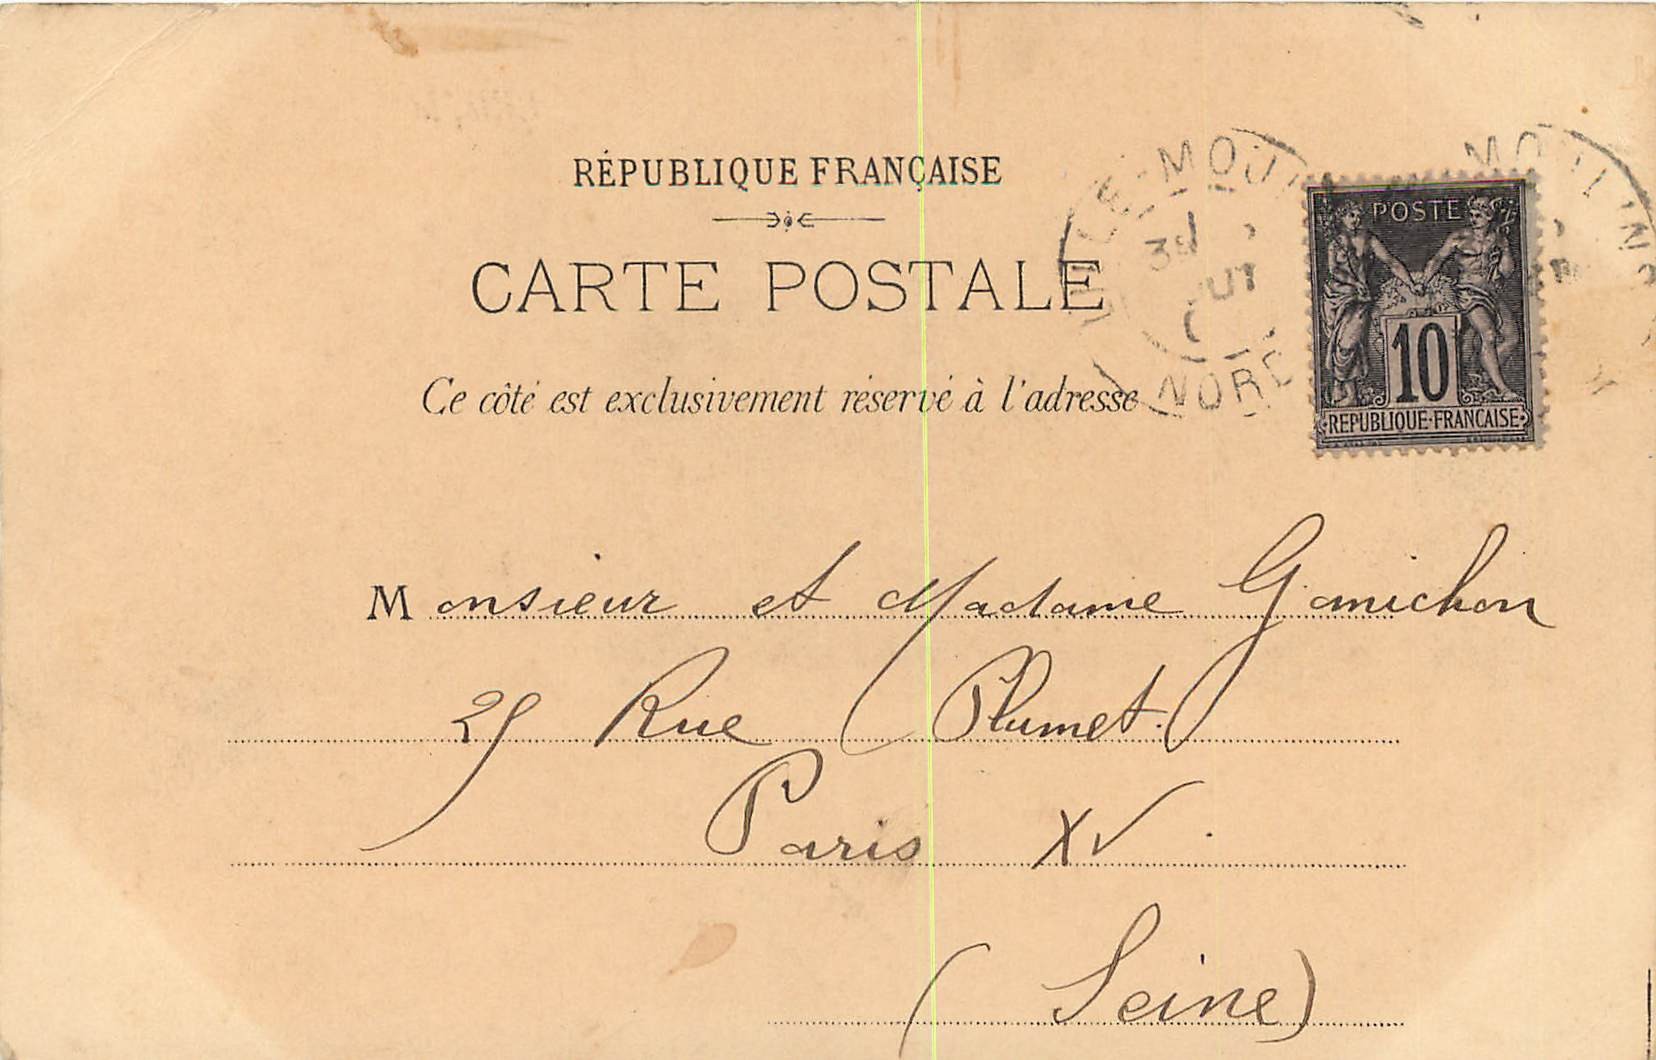 RÉPUBLIQUE FRANÇAISE
CARTE POSTALE
Ce côté est exclusivement réservé à l'adresse
POSTE
10
REPUBLIQUE·FRANCAISE
NORD
Monsieur et Madame Ganichon
25 Rue Plumet.
Paris XV.
(Seine)